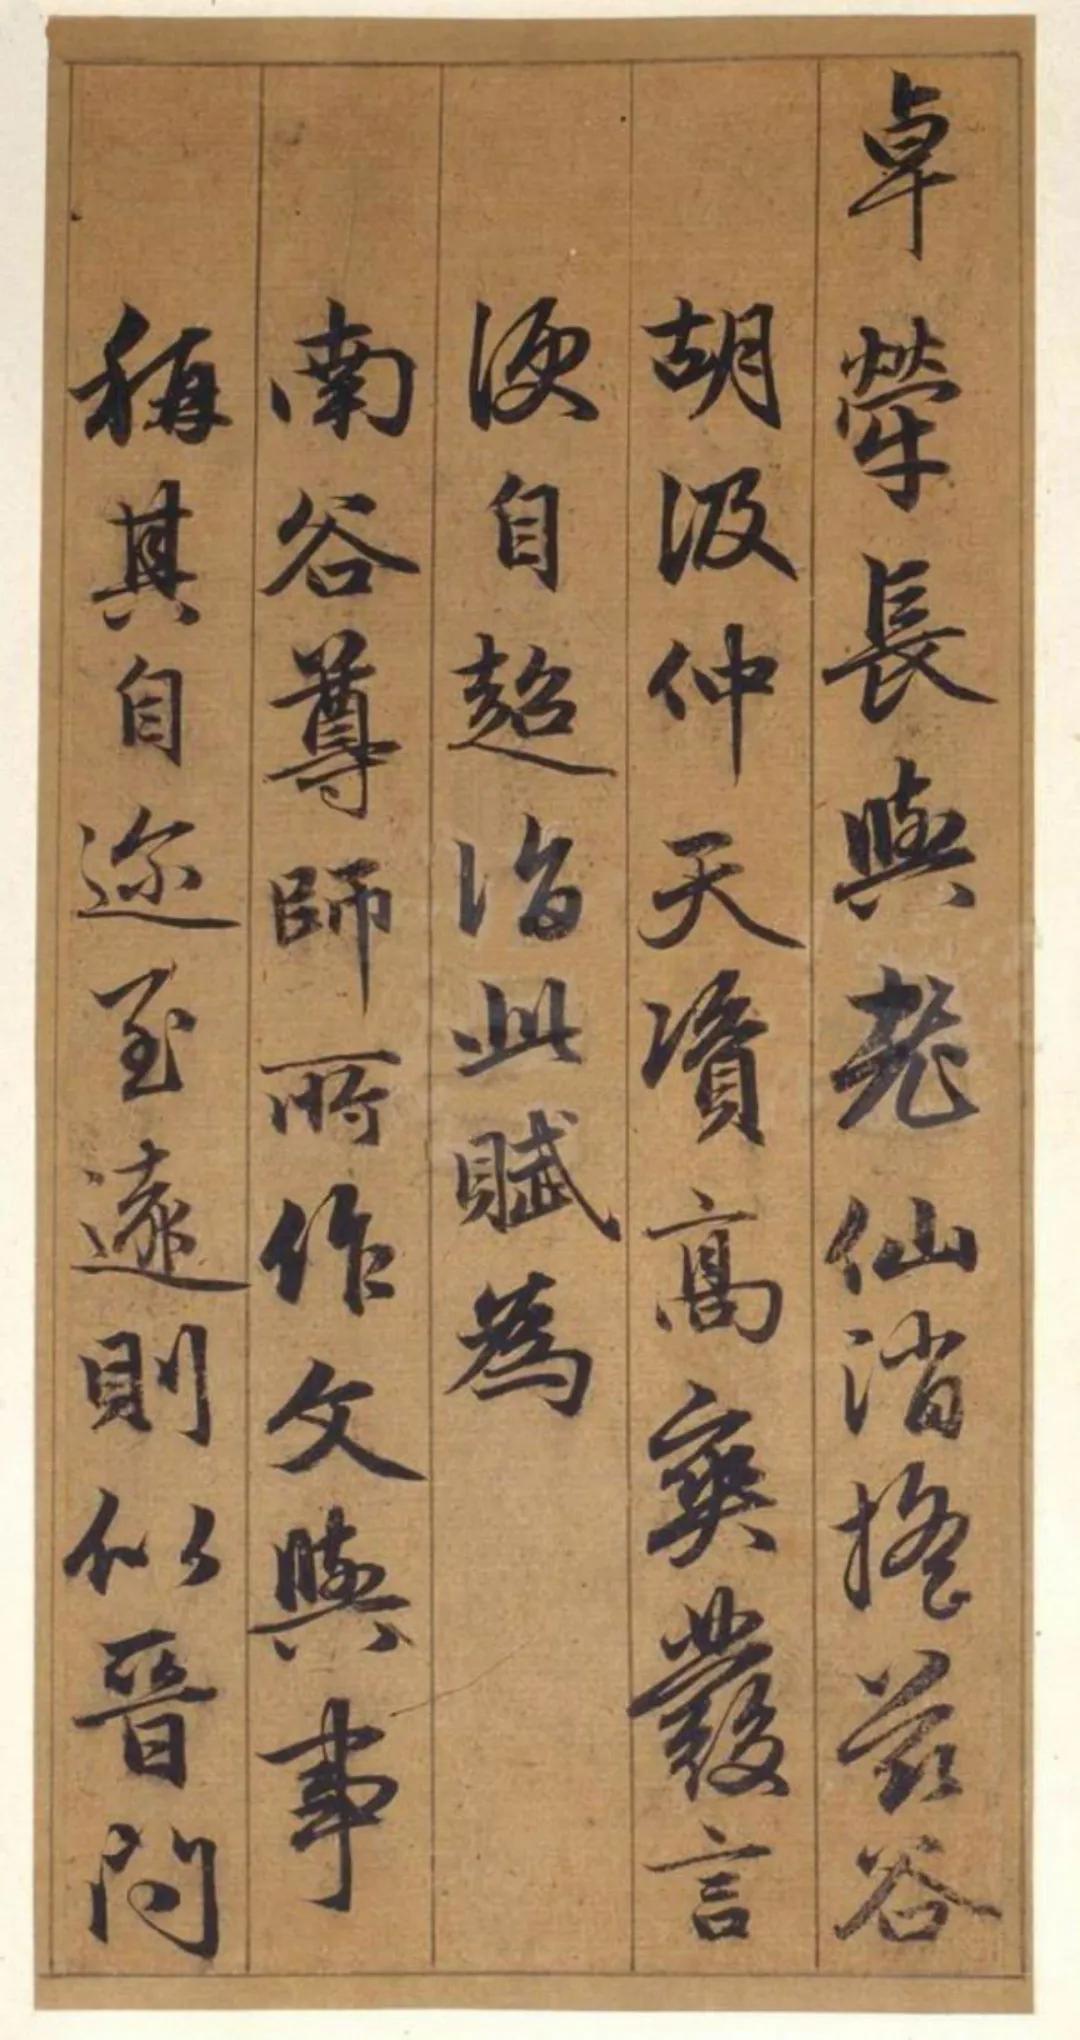 卓犖長與老仙消搖茲谷
胡汲仲天資高爽發言
便自超詣此賦為
南谷尊師所作文與事
稱其自迩至遠則似晉問